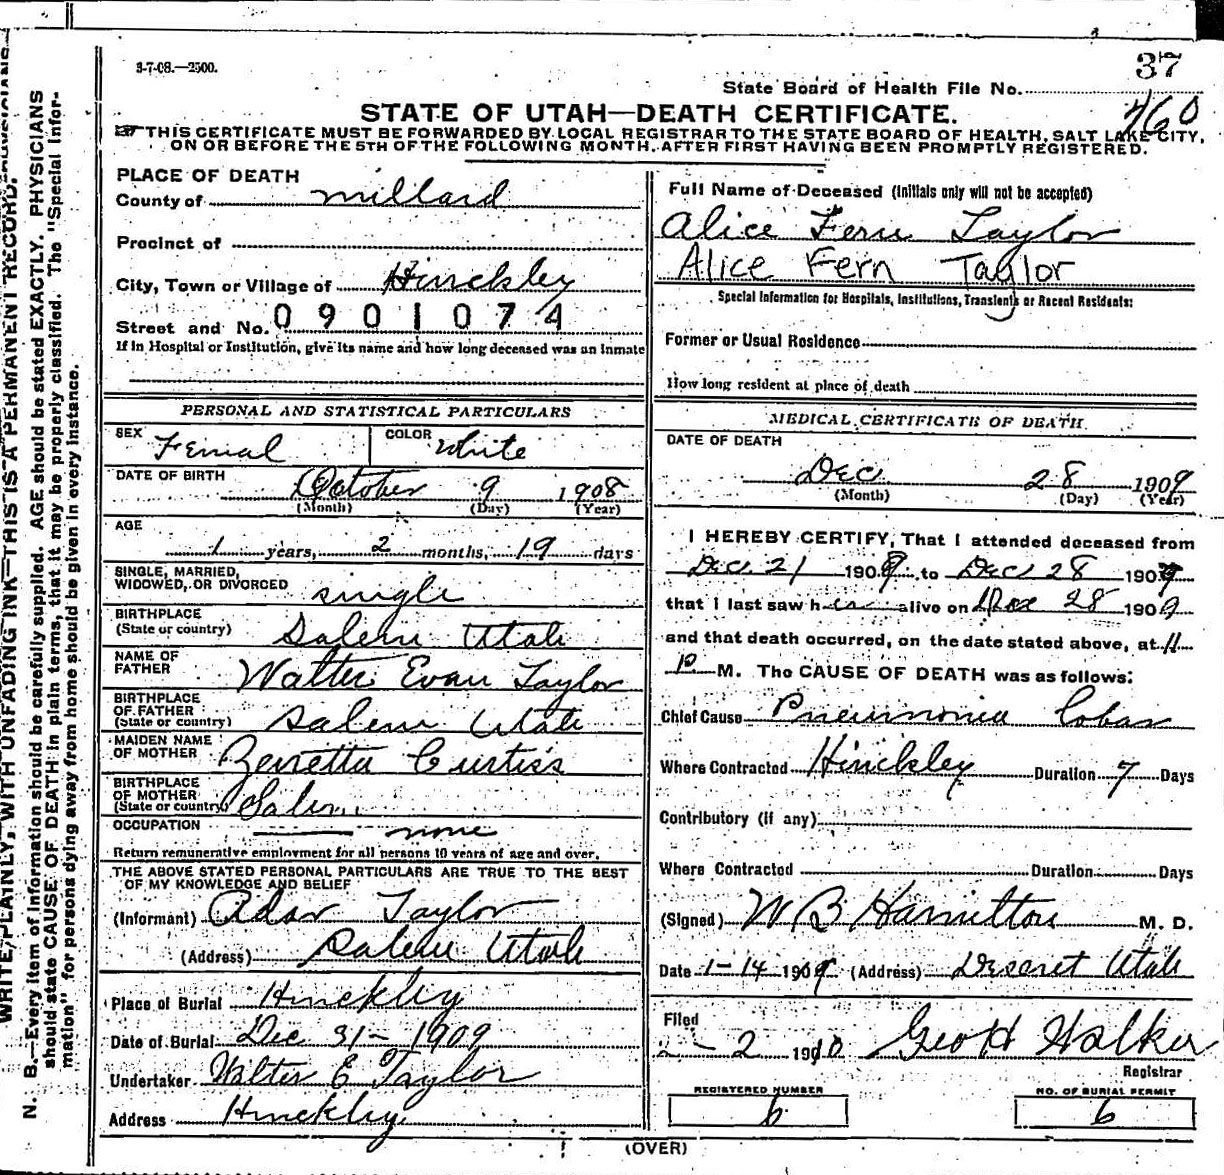 3-7-08.—2500.
37
State Board of Health File No.
460
STATE OF UTAH—DEATH CERTIFICATE.
THIS CERTIFICATE MUST BE FORWARDED BY LOCAL REGISTRAR TO THE STATE BOARD OF HEALTH, SALT LAKE CITY,
ON OR BEFORE THE 5TH OF THE FOLLOWING MONTH, AFTER FIRST HAVING BEEN PROMPTLY REGISTERED.
WRITE PLAINLY, WITH UNFADING INK—THIS IS A PERMANENT RECORD.
N. B.—Every item of information should be carefully supplied. AGE should be stated EXACTLY. PHYSICIANS
should state CAUSE OF DEATH in plain terms, that it may be properly classified. The "Special Infor-
mation" for persons dying away from home should be given in every instance.
PLACE OF DEATH
County of Millard
Precinct of
City, Town or Village of Hinckley
Street and No. 0901074
If in Hospital or Institution, give its name and how long deceased was an inmate
PERSONAL AND STATISTICAL PARTICULARS
SEX Femal COLOR White
DATE OF BIRTH
October 9 1908
(Month) (Day) (Year)
AGE
1 years, 2 months, 19 days
SINGLE, MARRIED,
WIDOWED, OR DIVORCED single
BIRTHPLACE
(State or country) Salem Utah
NAME OF
FATHER Walter Evan Taylor
BIRTHPLACE
OF FATHER
(State or country) Salem Utah
MAIDEN NAME
OF MOTHER Zenetta Curtiss
BIRTHPLACE
OF MOTHER
(State or country) Salem
OCCUPATION none
Return remunerative employment for all persons 10 years of age and over.
THE ABOVE STATED PERSONAL PARTICULARS ARE TRUE TO THE BEST
OF MY KNOWLEDGE AND BELIEF
(Informant) Taylor
(Address) Salem Utah
Place of Burial Hinckley
Date of Burial Dec 31- 1909
Undertaker Walter E Taylor
Address Hinckley
Full Name of Deceased (Initials only will not be accepted)
Alice Fern Taylor
Alice Fern Taylor
Special Information for Hospitals, Institutions, Transients or Recent Residents:
Former or Usual Residence
How long resident at place of death
MEDICAL CERTIFICATE OF DEATH.
DATE OF DEATH
Dec 28 1909
(Month) (Day) (Year)
I HEREBY CERTIFY, That I attended deceased from
Dec. 21 1909, to Dec 28 1909
that I last saw her alive on Dec 28 1909
and that death occurred, on the date stated above, at 11
P. M. The CAUSE OF DEATH was as follows:
Chief Cause Pneumonia Lobar
Where Contracted Hinckley Duration 7 Days
Contributory (if any)
Where Contracted Duration Days
(Signed) W B Hamilton M. D.
Date 1-14 1909 (Address) Deseret Utah
Filed
2-2 1910 Geo H Walker
Registrar
REGISTERED NUMBER
6
NO. OF BURIAL PERMIT
6
(OVER)